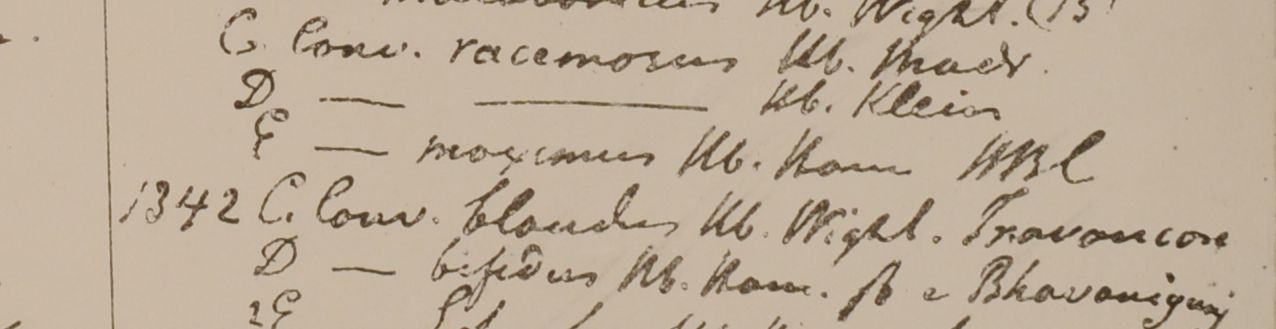 Hb. Wight. (B
C. Conv. racemosus Hb. Madr.
D — — Hb. Klein
E — maximus Hb. Ham HBC
1342 C. Conv. blandus Hb. Wight. Travancore
D — bifidus Hb. Ham. β e Bhavanigunj
E